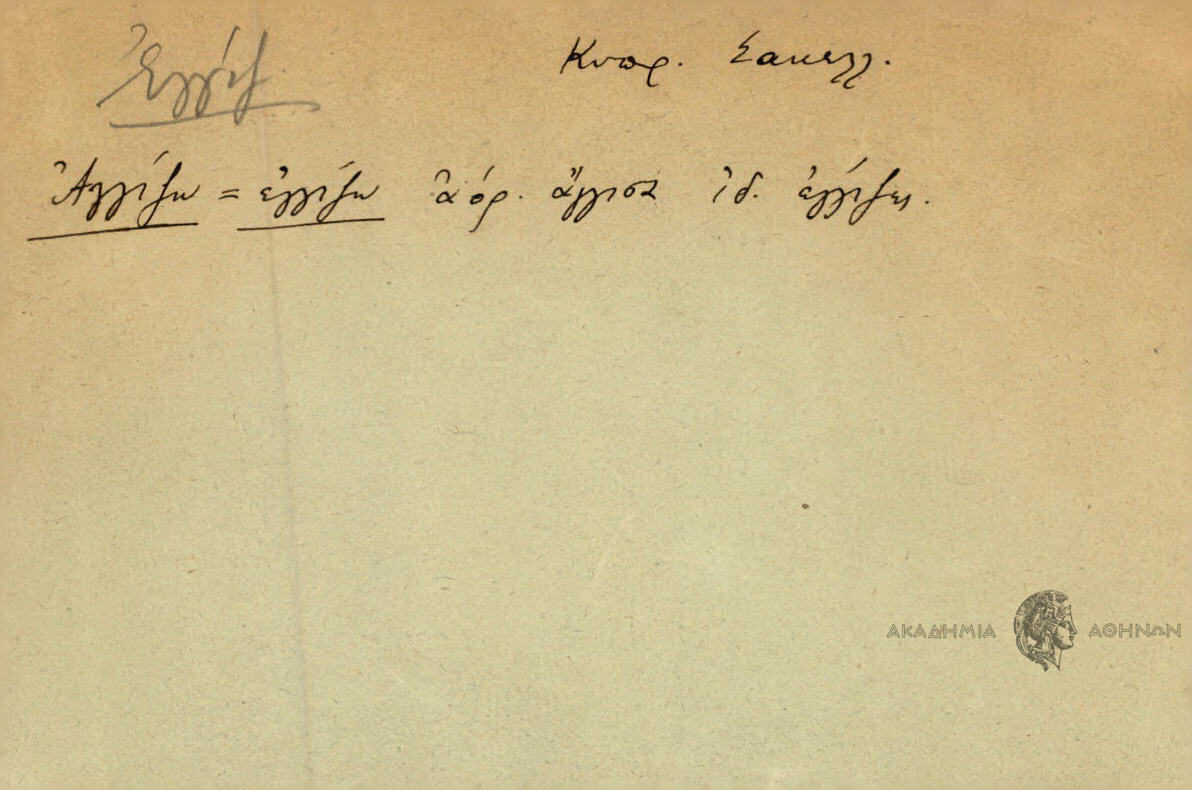 Ἐγγίζ
Κυπρ. Σακελλ.
Ἀγγίζω = ἐγγίζω ἀόρ. ἄγγισα ἰδ. ἐγγίζω.
ΑΚΑΔΗΜΙΑ ΑΘΗΝΩΝ